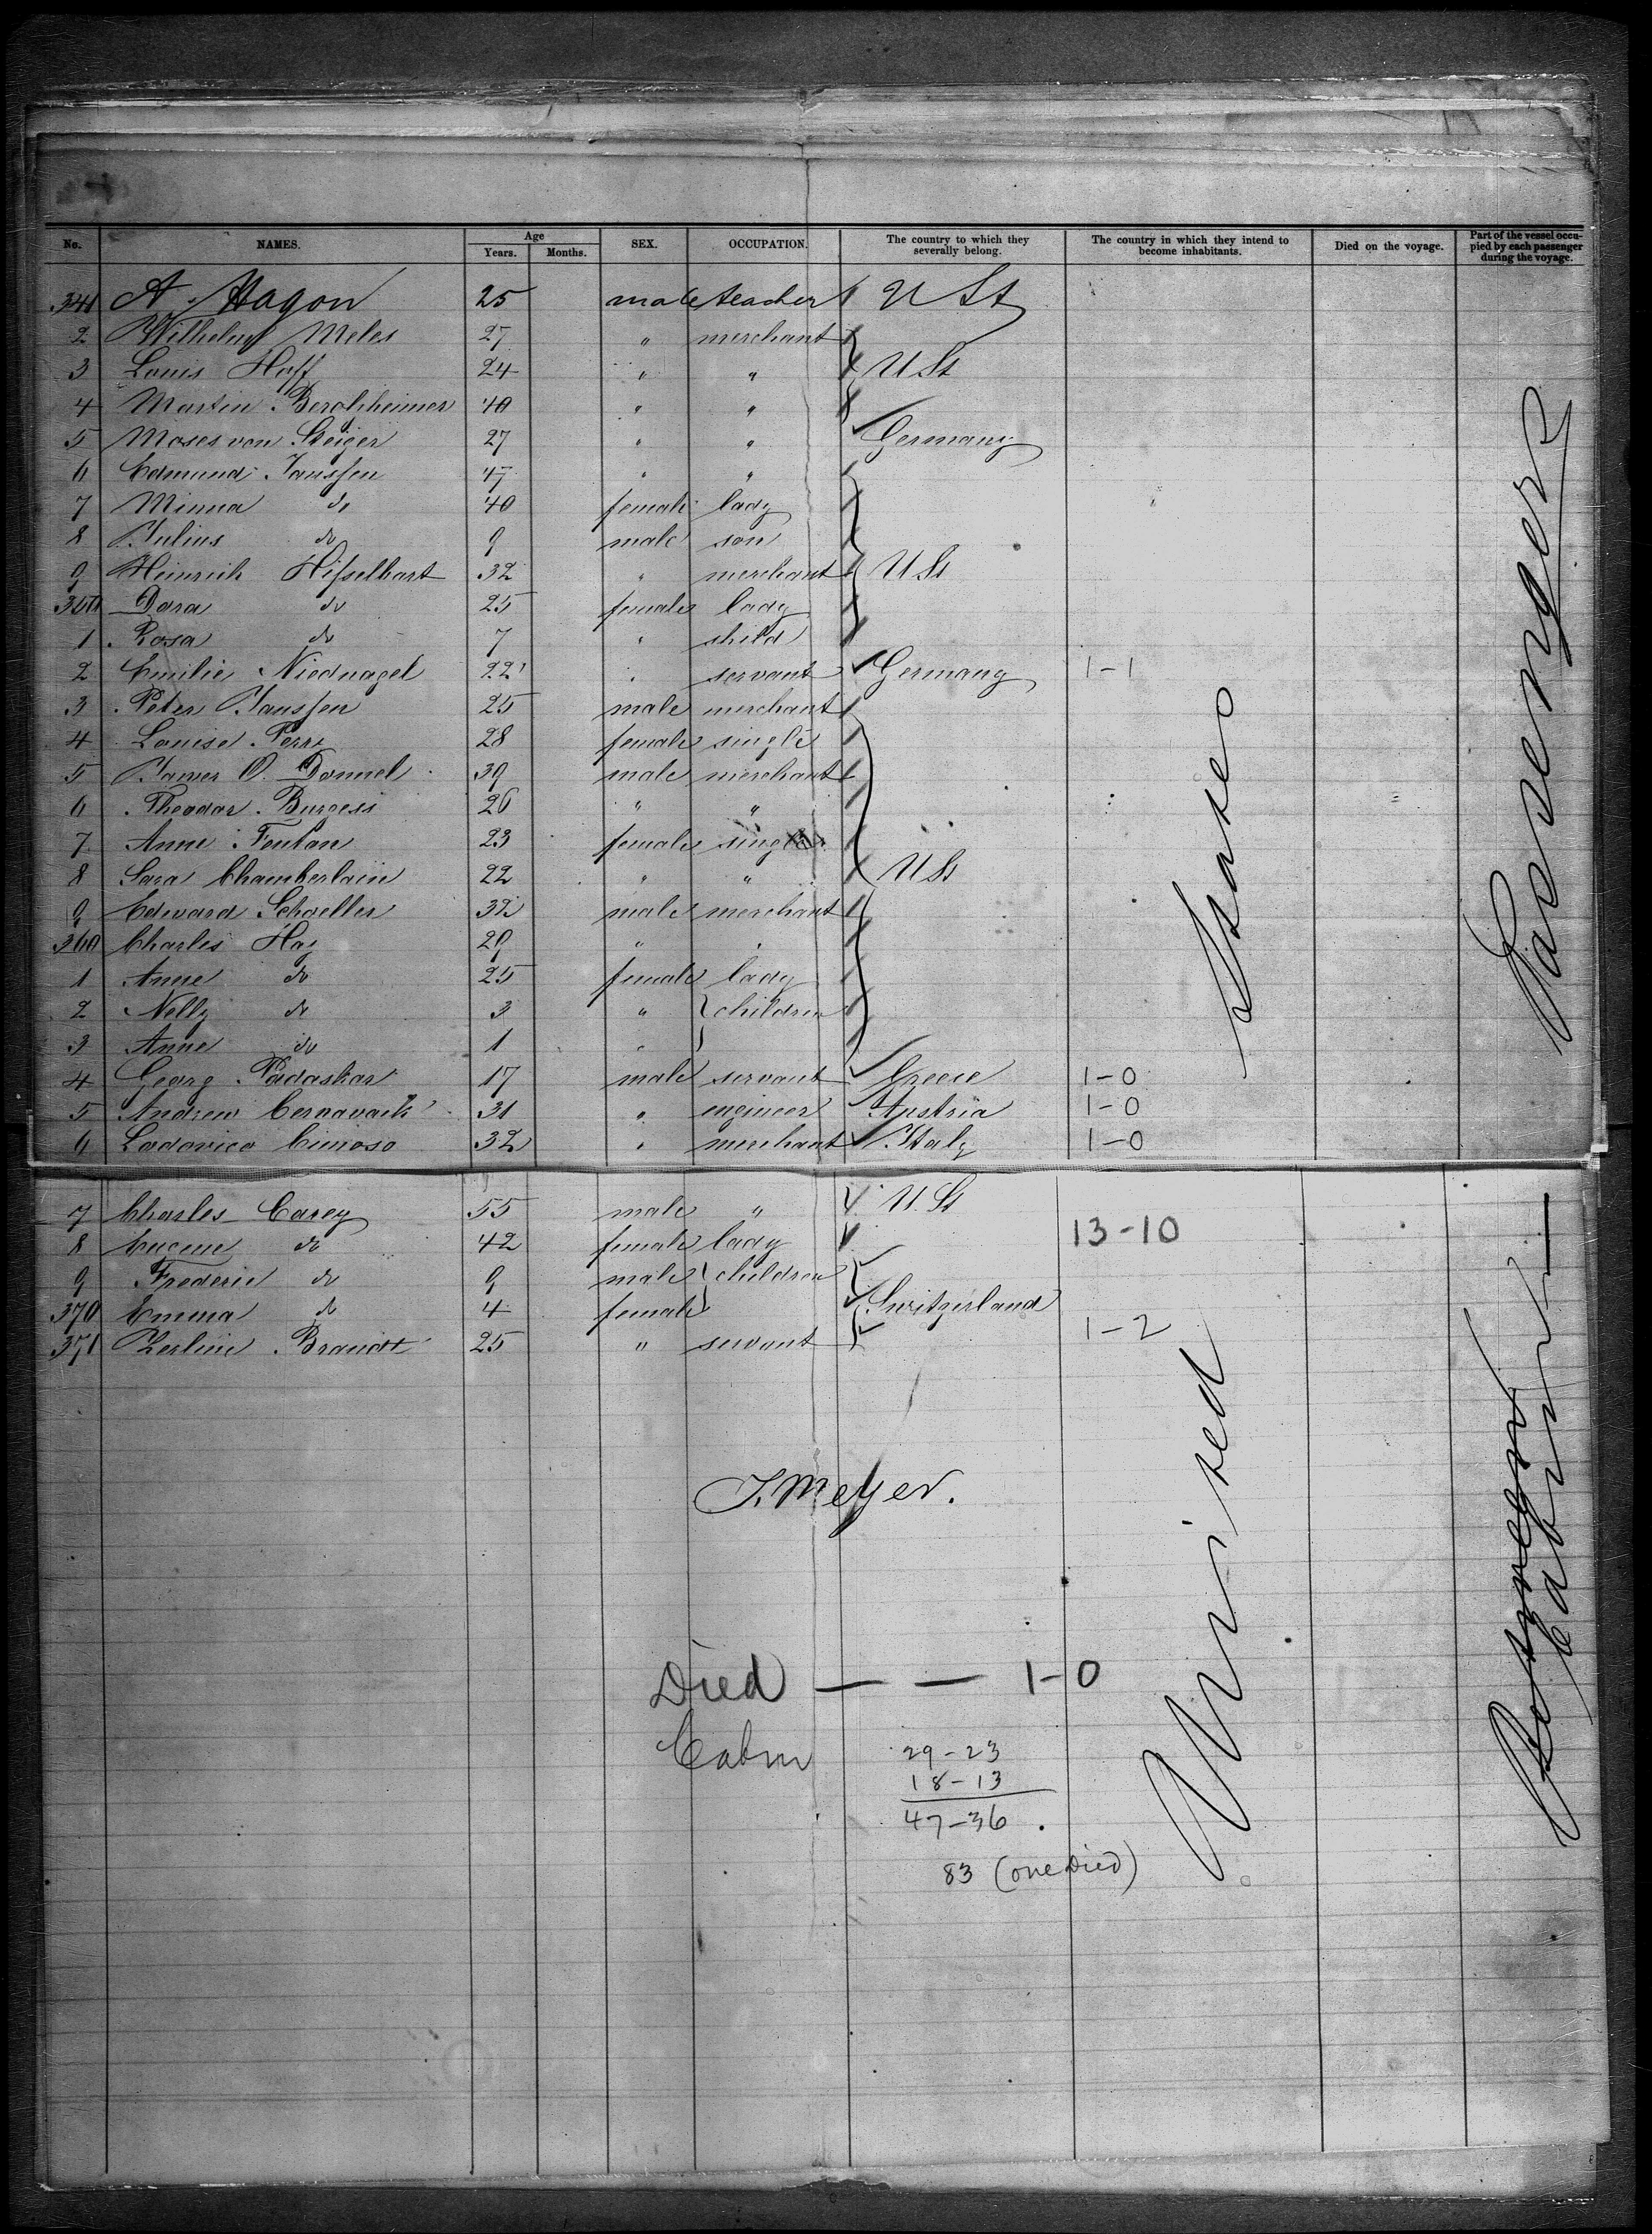 No. NAMES. Age Years. Months. SEX. OCCUPATION. The country to which they severally belong. The country in which they intend to become inhabitants. Died on the voyage. Part of the vessel occupied by each passenger during the voyage.
341 A. Hagon 25 male teacher U St
2 Wilhelm Meles 27 " merchant
3 Louis Hoff 24 " " U St
4 Martin Berolzheimer 40 " "
5 Moses von Steiger 27 " " Germany
6 Edmund Janssen 47 " "
7 Minna do 40 female lady
8 Julius do 9 male son
9 Heinrich Hisselhart 32 " merchant U St
350 Dora do 25 female lady
1 Rosa do 7 " child
2 Emilie Niednagel 22 " servant Germany 1-1
3 Peter Janssen 25 male merchant
4 Louise Perry 28 female single
5 James O. Donnel 39 male merchant
6 Theodor Burgess 26 " "
7 Anne Fenton 23 female single
8 Sara Chamberlain 22 " " U St
9 Edward Schoeller 32 male merchant
360 Charles Hay 29 " "
1 Anne do 25 female lady
2 Nelly do 3 " children
3 Anne do 1 "
4 Georg Padaskar 17 male servant Greece 1-0
5 Andrew 31 " engineer Austria 1-0
6 Lodovico Cimoso 32 " merchant Italy 1-0
7 Charles Carey 55 male " U. St
8 Eugene do 42 female lady 13-10
9 Frederic do 9 male children
370 Emma do 4 female Switzerland
371 Zerline Brandt 25 " servant 1-2
United States
Passenger
Between
Cabin
J. Meyer.
Died — — 1-0
Cabin 29-23
18-13
47-36
83 (one Died)